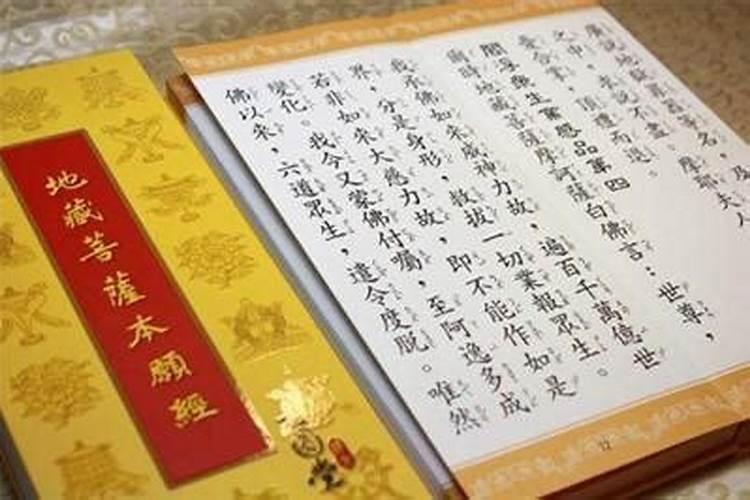 廣說地獄罪器等名，及
之中，求說不盡。摩耶夫人
憂合掌，頂禮而退。
閻浮眾生業感品第四
爾時地藏菩薩摩訶薩白佛言：世尊，
我承佛如來威神力故，遍百千萬億世
界，分是身形，救拔一切業報眾生。
若非如來大慈力故，即不能作如是
變化。我今又蒙佛付囑，至阿逸多成
佛以來，六道眾生，遣令度脫。唯然
12
地藏菩薩本願經